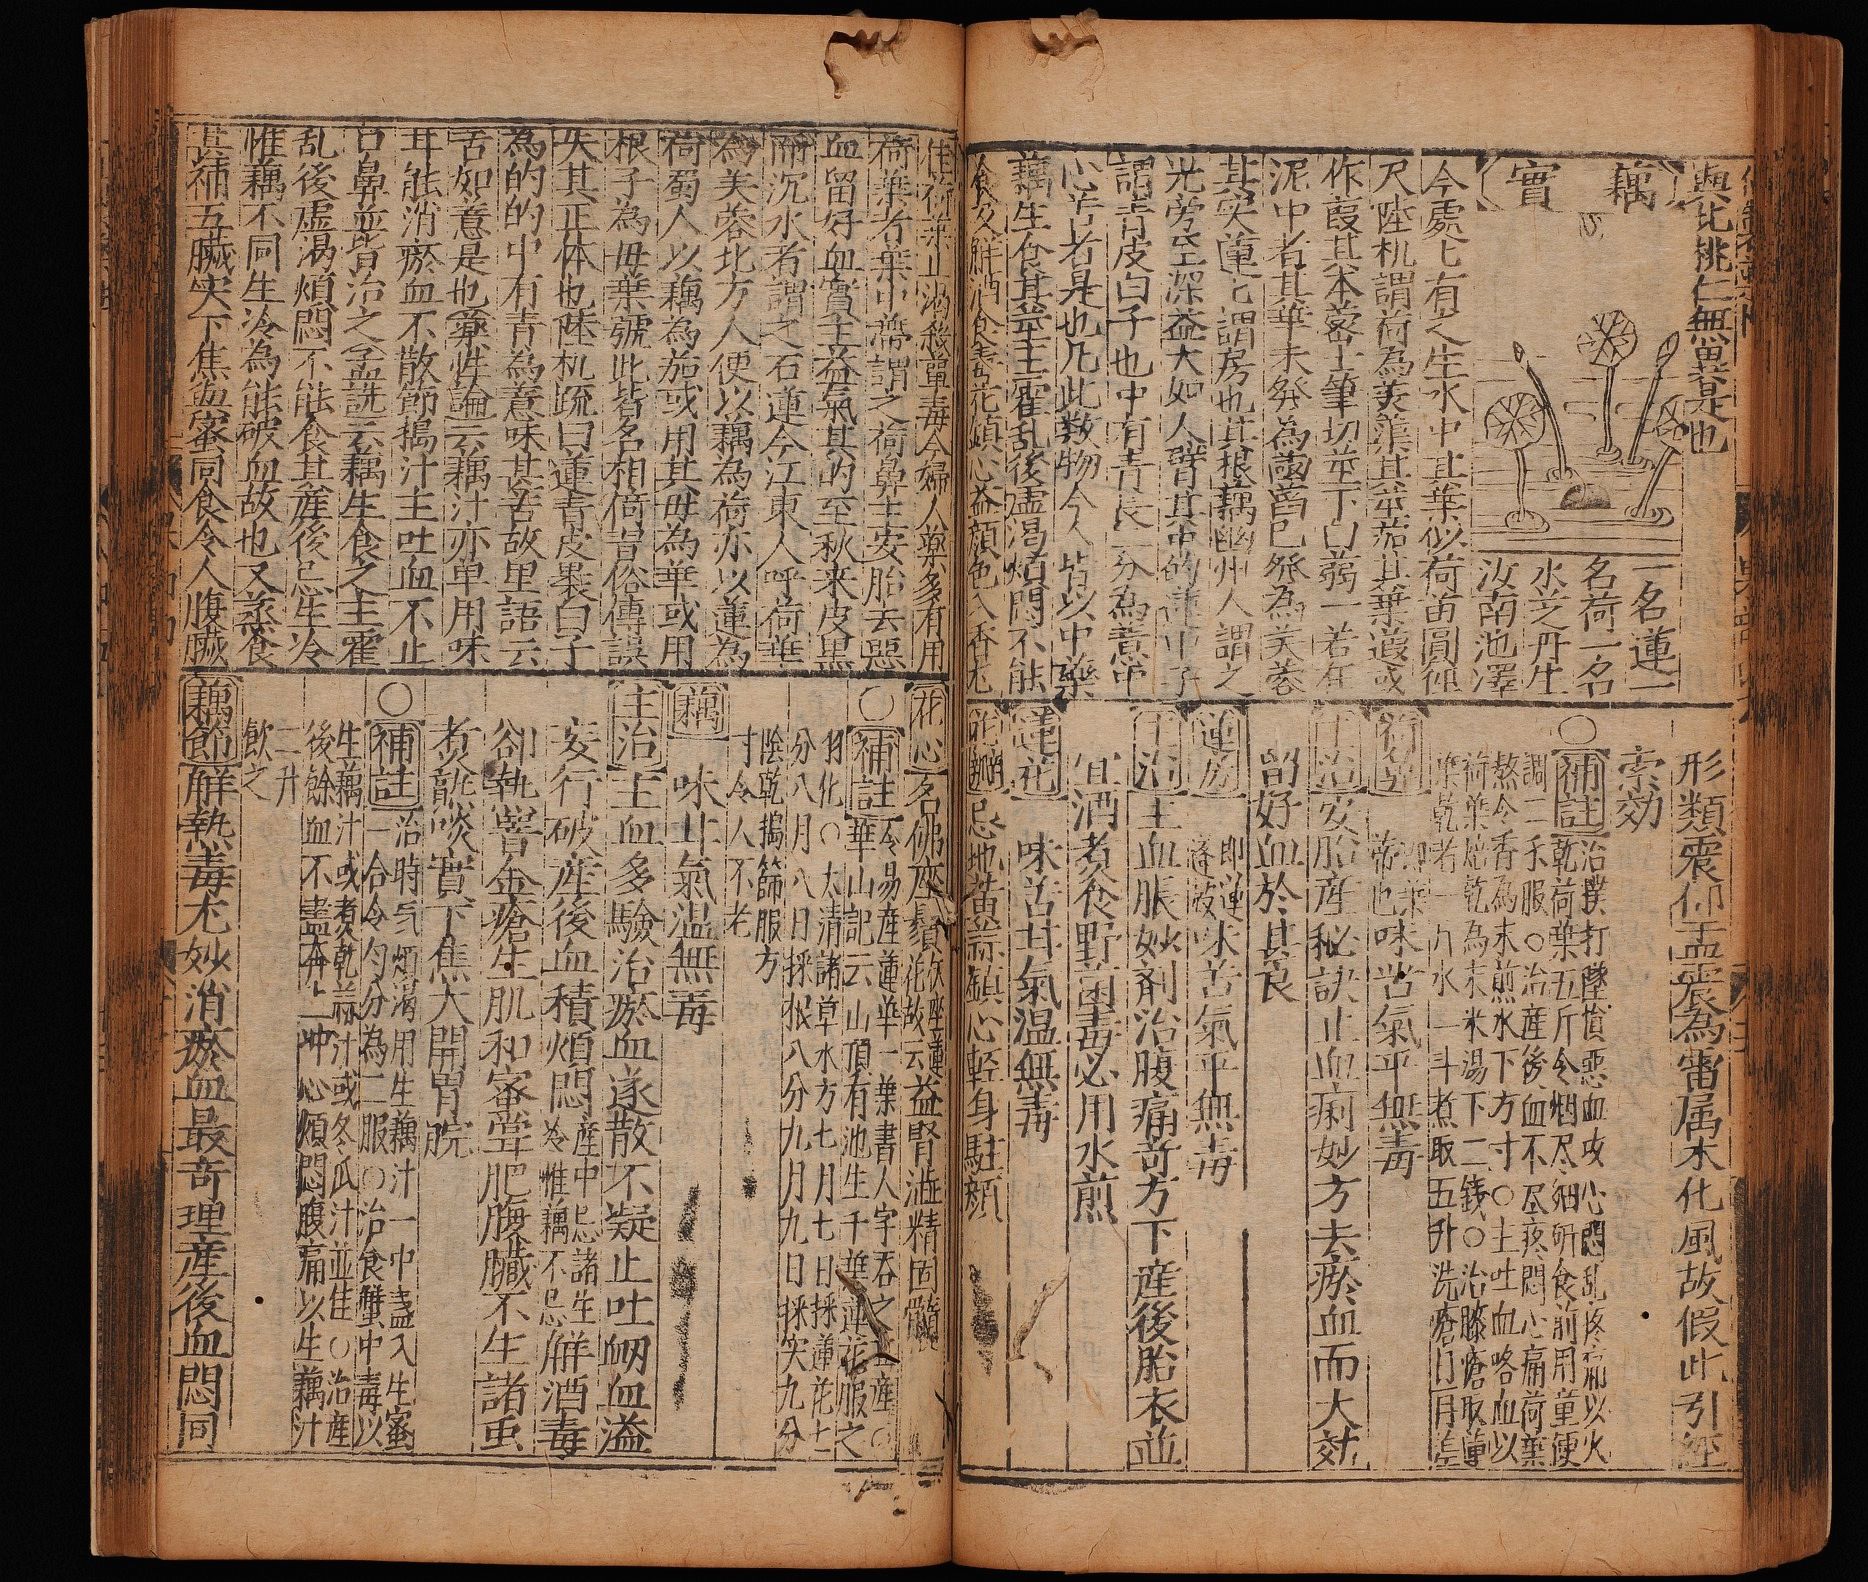 與此桃仁無異是也
藕實
一名蓮一
名荷一名
水芝丹生
汝南池澤
今處七有之生水中其華似荷而圓仰
尺陸机謂荷為芙蕖其莖茄其葉蕸或
作葭其本蔤上筆切莖下白蒻一若在
泥中者其華未發為菡萏已發為芙蓉
其实蓮七謂房也其根藕幽州人謂之
光旁至深益大如人臂其中的蓮中子
謂青皮白子也中有青長一分為薏中
心苦者是也凡此数物今人皆以中藥
藕生食其莖主霍乱後虛渴煩悶不能
食及解酒食毒花鎮心益顏色入香尤
佳荷葉止渴殺蕈毒今婦人藥多有用
荷葉者葉中蔕謂之荷鼻主安胎去惡
血留好血實主益氣其的至秋来皮黑
而沉水者謂之石蓮今江東人呼荷華
為芙蓉北方人便以藕為荷亦以蓮為
荷蜀人以藕為茄或用其母為華或用
根子為母葉號此皆名相倚冒俗傳誤
失其正体也陸机疏曰蓮青皮裹白子
為的的中有青為薏味甚苦故里語云
苦如薏是也藥性論云藕汁亦单用味
耳能消瘀血不散節搗汁主吐血不止
口鼻並皆治之孟詵云藕生食之主霍
乱後虛渴煩悶不能食其産後忌生冷
惟藕不同生冷為能破血故也又蒸食
甚補五臟实下焦與蜜同食令人腹臟
形類震仰盂震為雷属木化風故假此引經
索効
○補註治撲打墜憤惡血攻心悶乱疼痛以火
乾荷葉五斤令烟尽細研食前用童便
調二禾服○治産後血不尽疼悶心痛荷葉
熬令香為末煎水下方寸○土吐血咯血以
荷葉焙乾為末米湯下二錢○治膝瘡取蓮
葉乾者一斤水一斗煮取五升洗瘡日一月差
即葉蒂也味苦氣平無毒
主治安胎産秘訣止血痢妙方去瘀血而大効
留好血於其良
蓮房即蓮蓬殼味苦氣平無毒
主治主血脹妙剤治腹痛奇方下産後胎衣並
宜酒煮食野菌毒必用水煎
蓮花味苦甘氣温無毒
忌地黄蒜鎮心輕身駐顏
花心名佛座鬚佽座蓮花故云益腎澁精固髓
○補註令易産蓮華一葉書人字吞之立産○
華山記云山頂有池生千華蓮花服之
羽化○太清諸草水方七月七日採蓮花七
分八月八日採根八分九月九日採实九分
陰乾搗篩服方
寸令人不老
藕味甘氣温無毒
主治主血多驗治瘀血遂散不凝止吐衂血溢
妄行破産後血積煩悶産中忌諸生冷惟藕不忌解酒毒
卻熱嘗金瘡生肌和蜜食肥腹臟不生諸虫
煮熟啖實下焦大開胃脘
○補註治時气煩渴用生藕汁一中盞入生蜜
一合令匀分為二服○治食蟹中毒以
生藕汁或煮乾蒜汁或冬瓜汁並佳○治産
後餘血不盡奔上衝心煩悶腹痛以生藕汁
二升
飲之
藕節解熱毒尤妙消瘀血最奇理産後血悶同